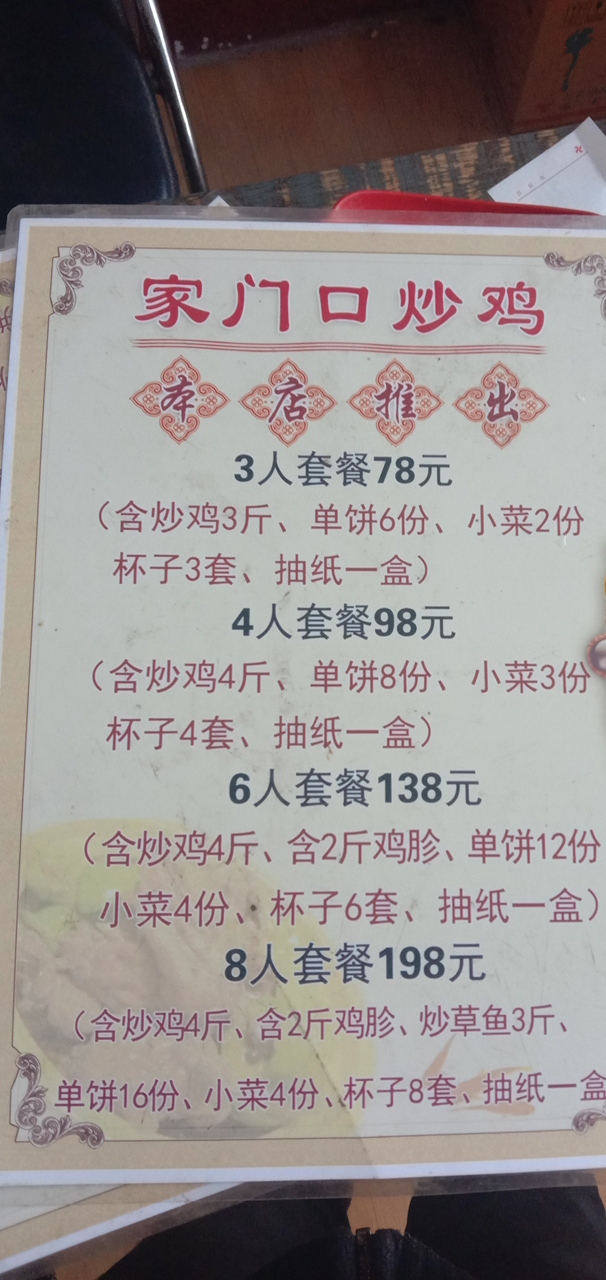 家门口炒鸡
本店推出
3人套餐78元
（含炒鸡3斤、单饼6份、小菜2份
杯子3套、抽纸一盒）
4人套餐98元
（含炒鸡4斤、单饼8份、小菜3份
杯子4套、抽纸一盒）
6人套餐138元
（含炒鸡4斤、含2斤鸡胗、单饼12份
小菜4份、杯子6套、抽纸一盒）
8人套餐198元
（含炒鸡4斤、含2斤鸡胗、炒草鱼3斤、
单饼16份、小菜4份、杯子8套、抽纸一盒